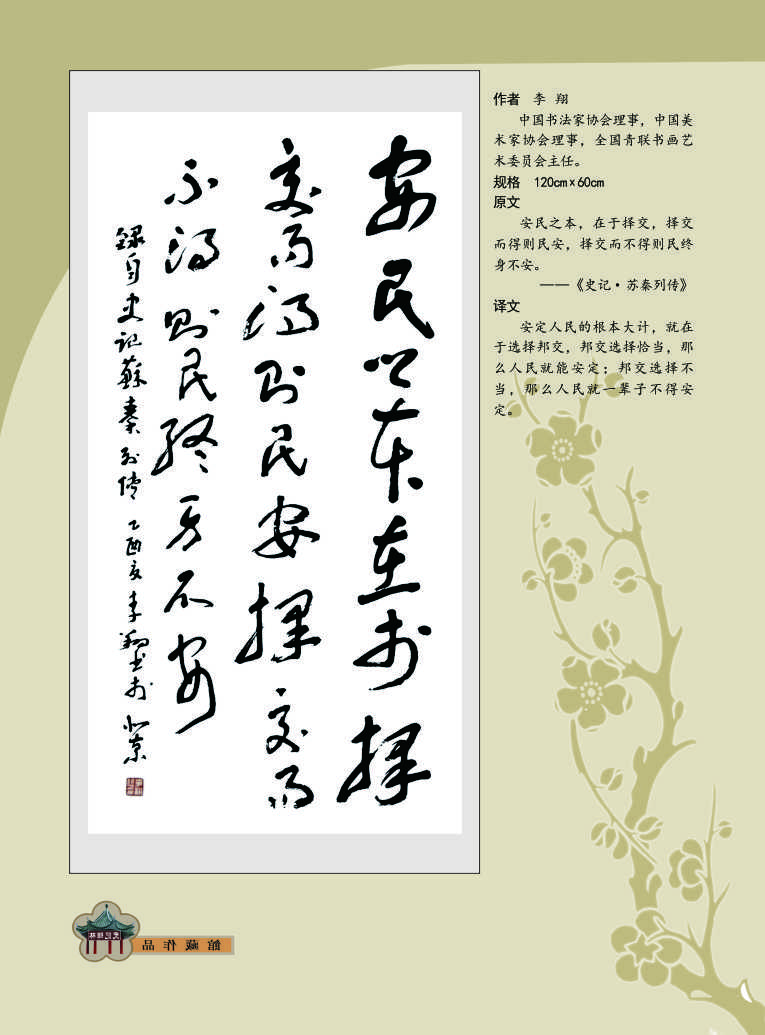 安民之本在於擇
交而得則民安擇交而
不得則民終身不安
録自史記蘇秦列傳 乙酉夏李翔書於北京
作者 李 翔
中国书法家协会理事，中国美
术家协会理事，全国青联书画艺
术委员会主任。
规格 120cm×60cm
原文
安民之本，在于择交，择交
而得则民安，择交而不得则民终
身不安。
——《史记·苏秦列传》
译文
安定人民的根本大计，就在
于选择邦交，邦交选择恰当，那
么人民就能安定；邦交选择不
当，那么人民就一辈子不得安
定。
館藏作品